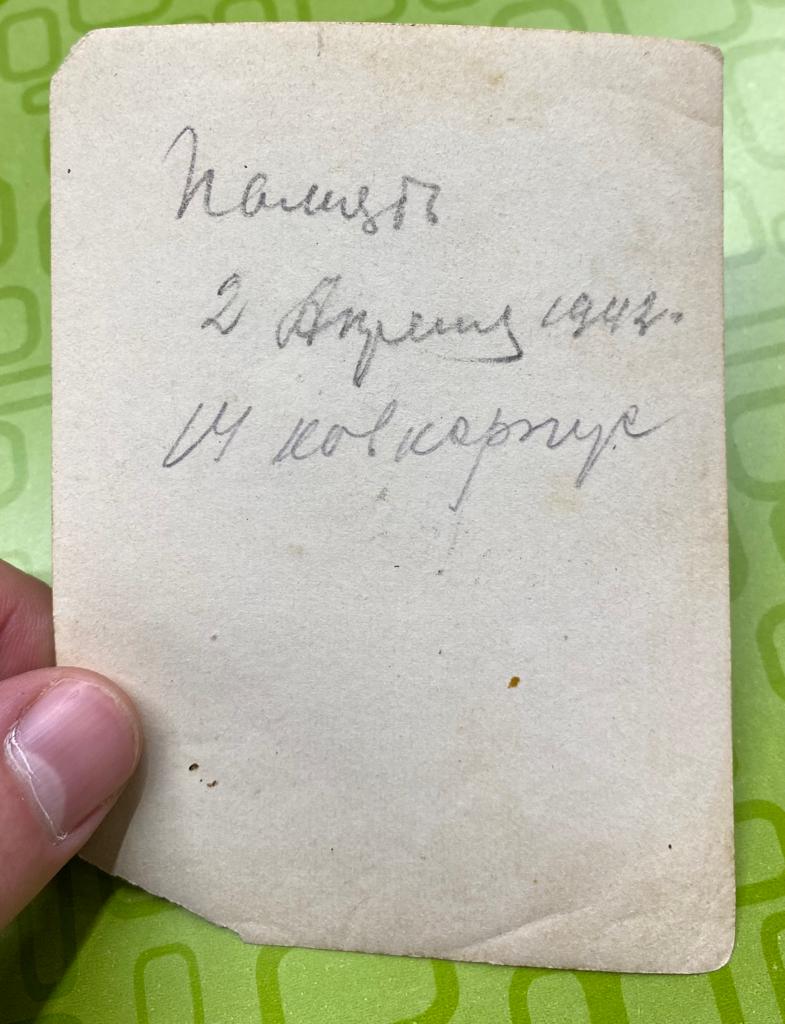 Память
2 Апреля 1942.
14 кавкорпус